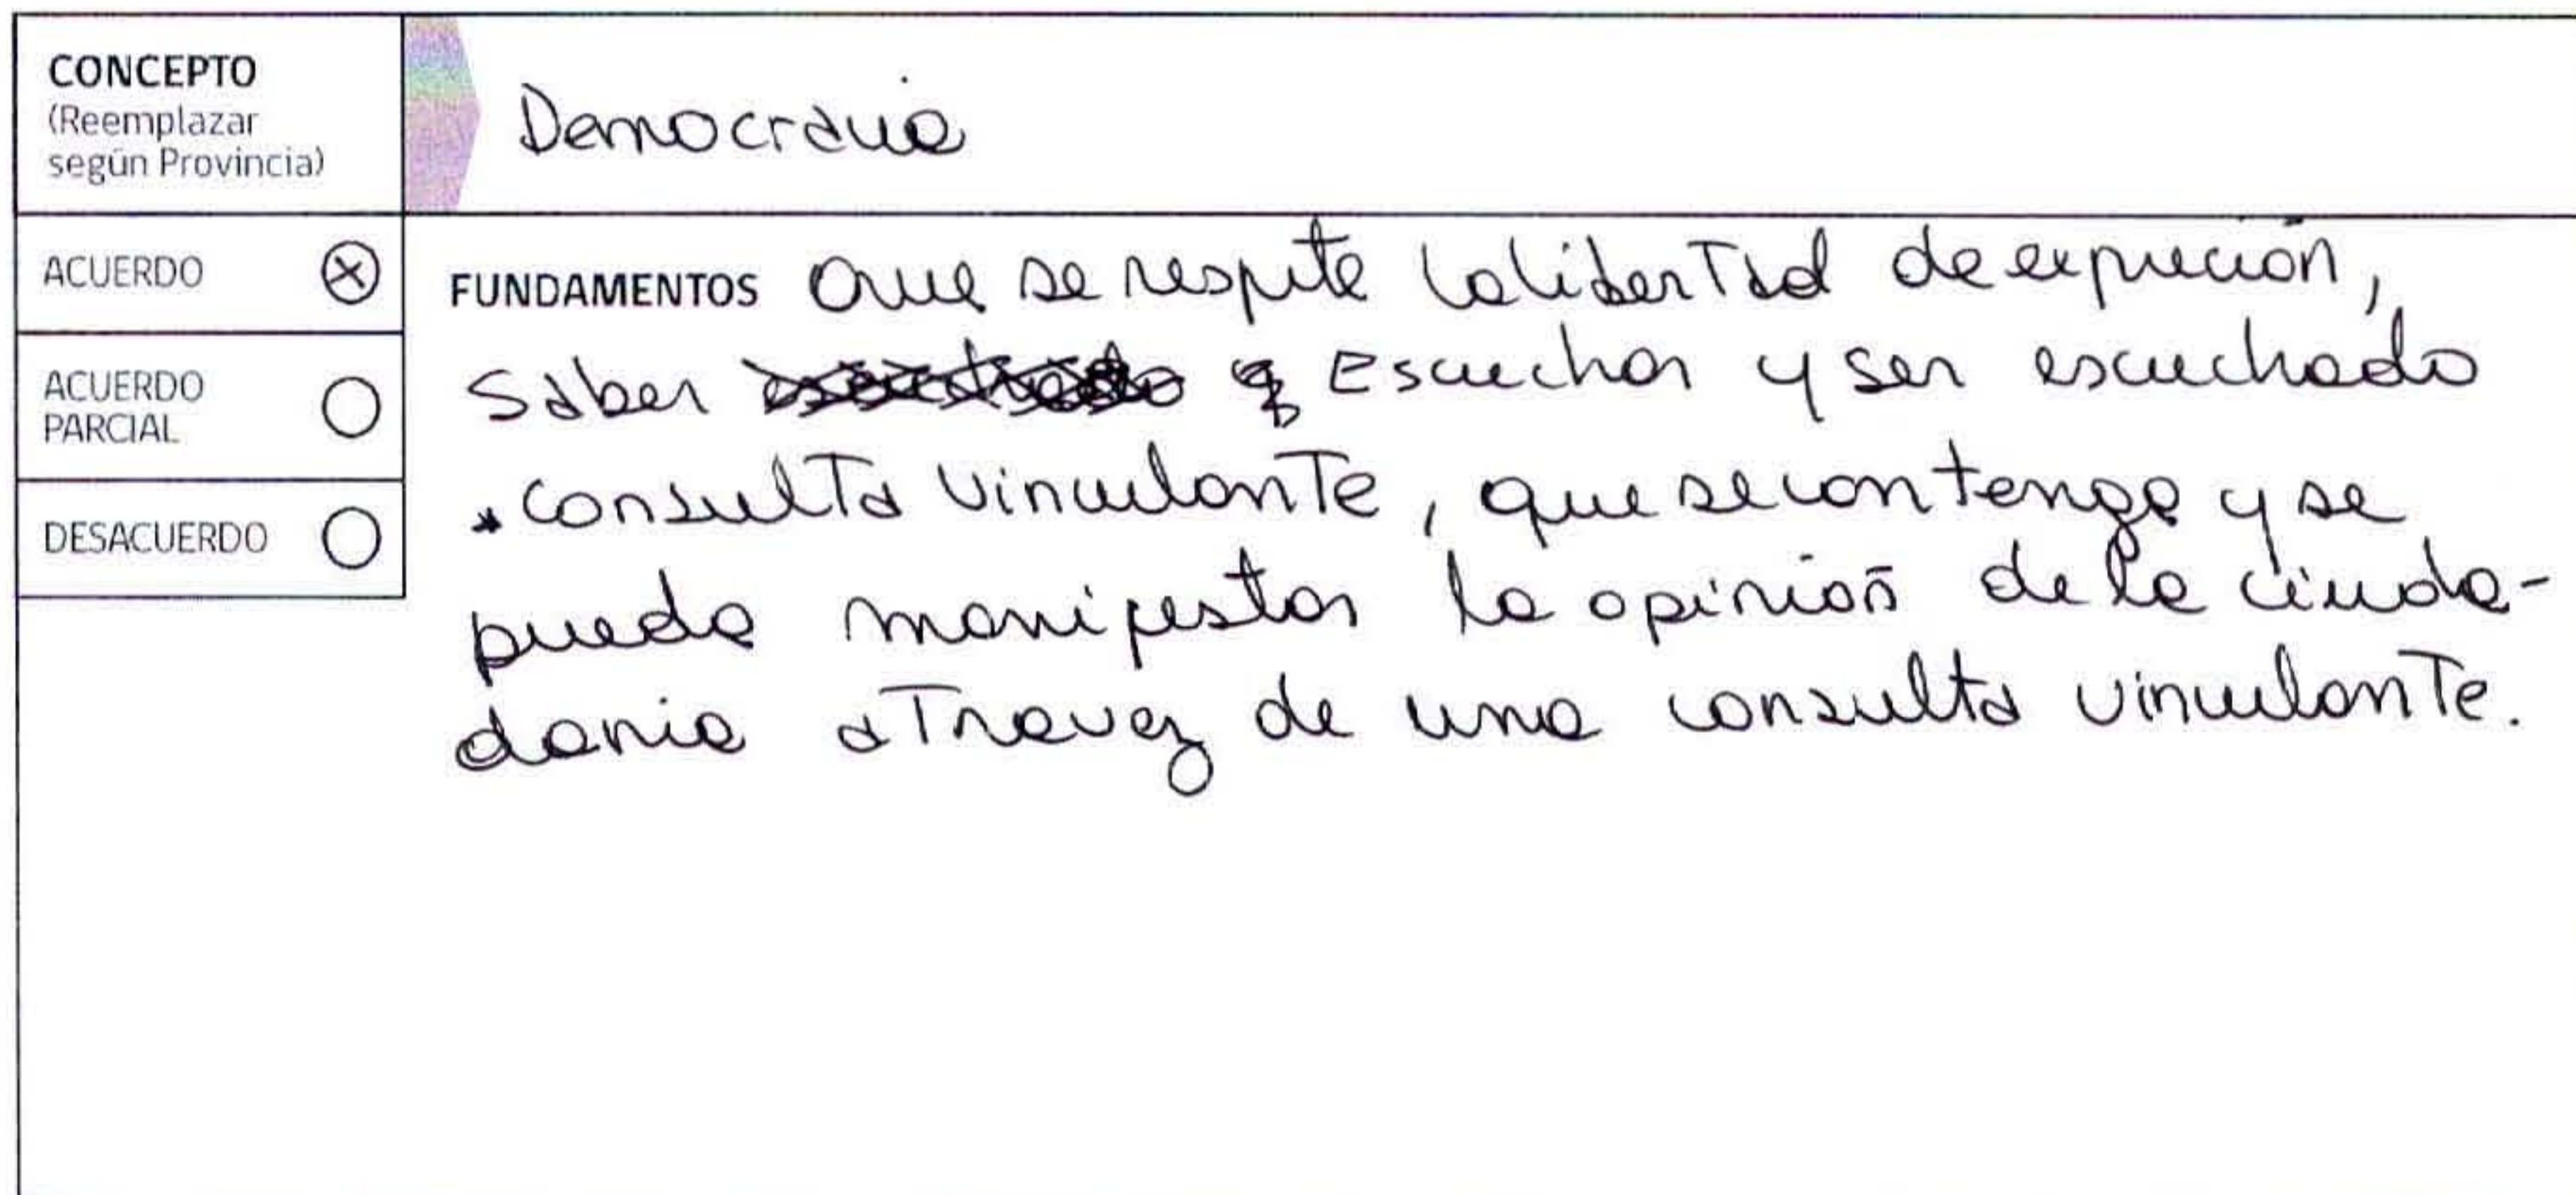 CONCEPTO
(Reemplazar
según Provincia)
Democracia
ACUERDO
ACUERDO
PARCIAL
DESACUERDO
FUNDAMENTOS Que se respete la libertad de expreción,
Saber Escuchar y ser escuchado
* Consulta vinculante, que se contenga y se
pueda manifestar la opinión de la ciuda-
dania a Travez de una consulta vinculante.